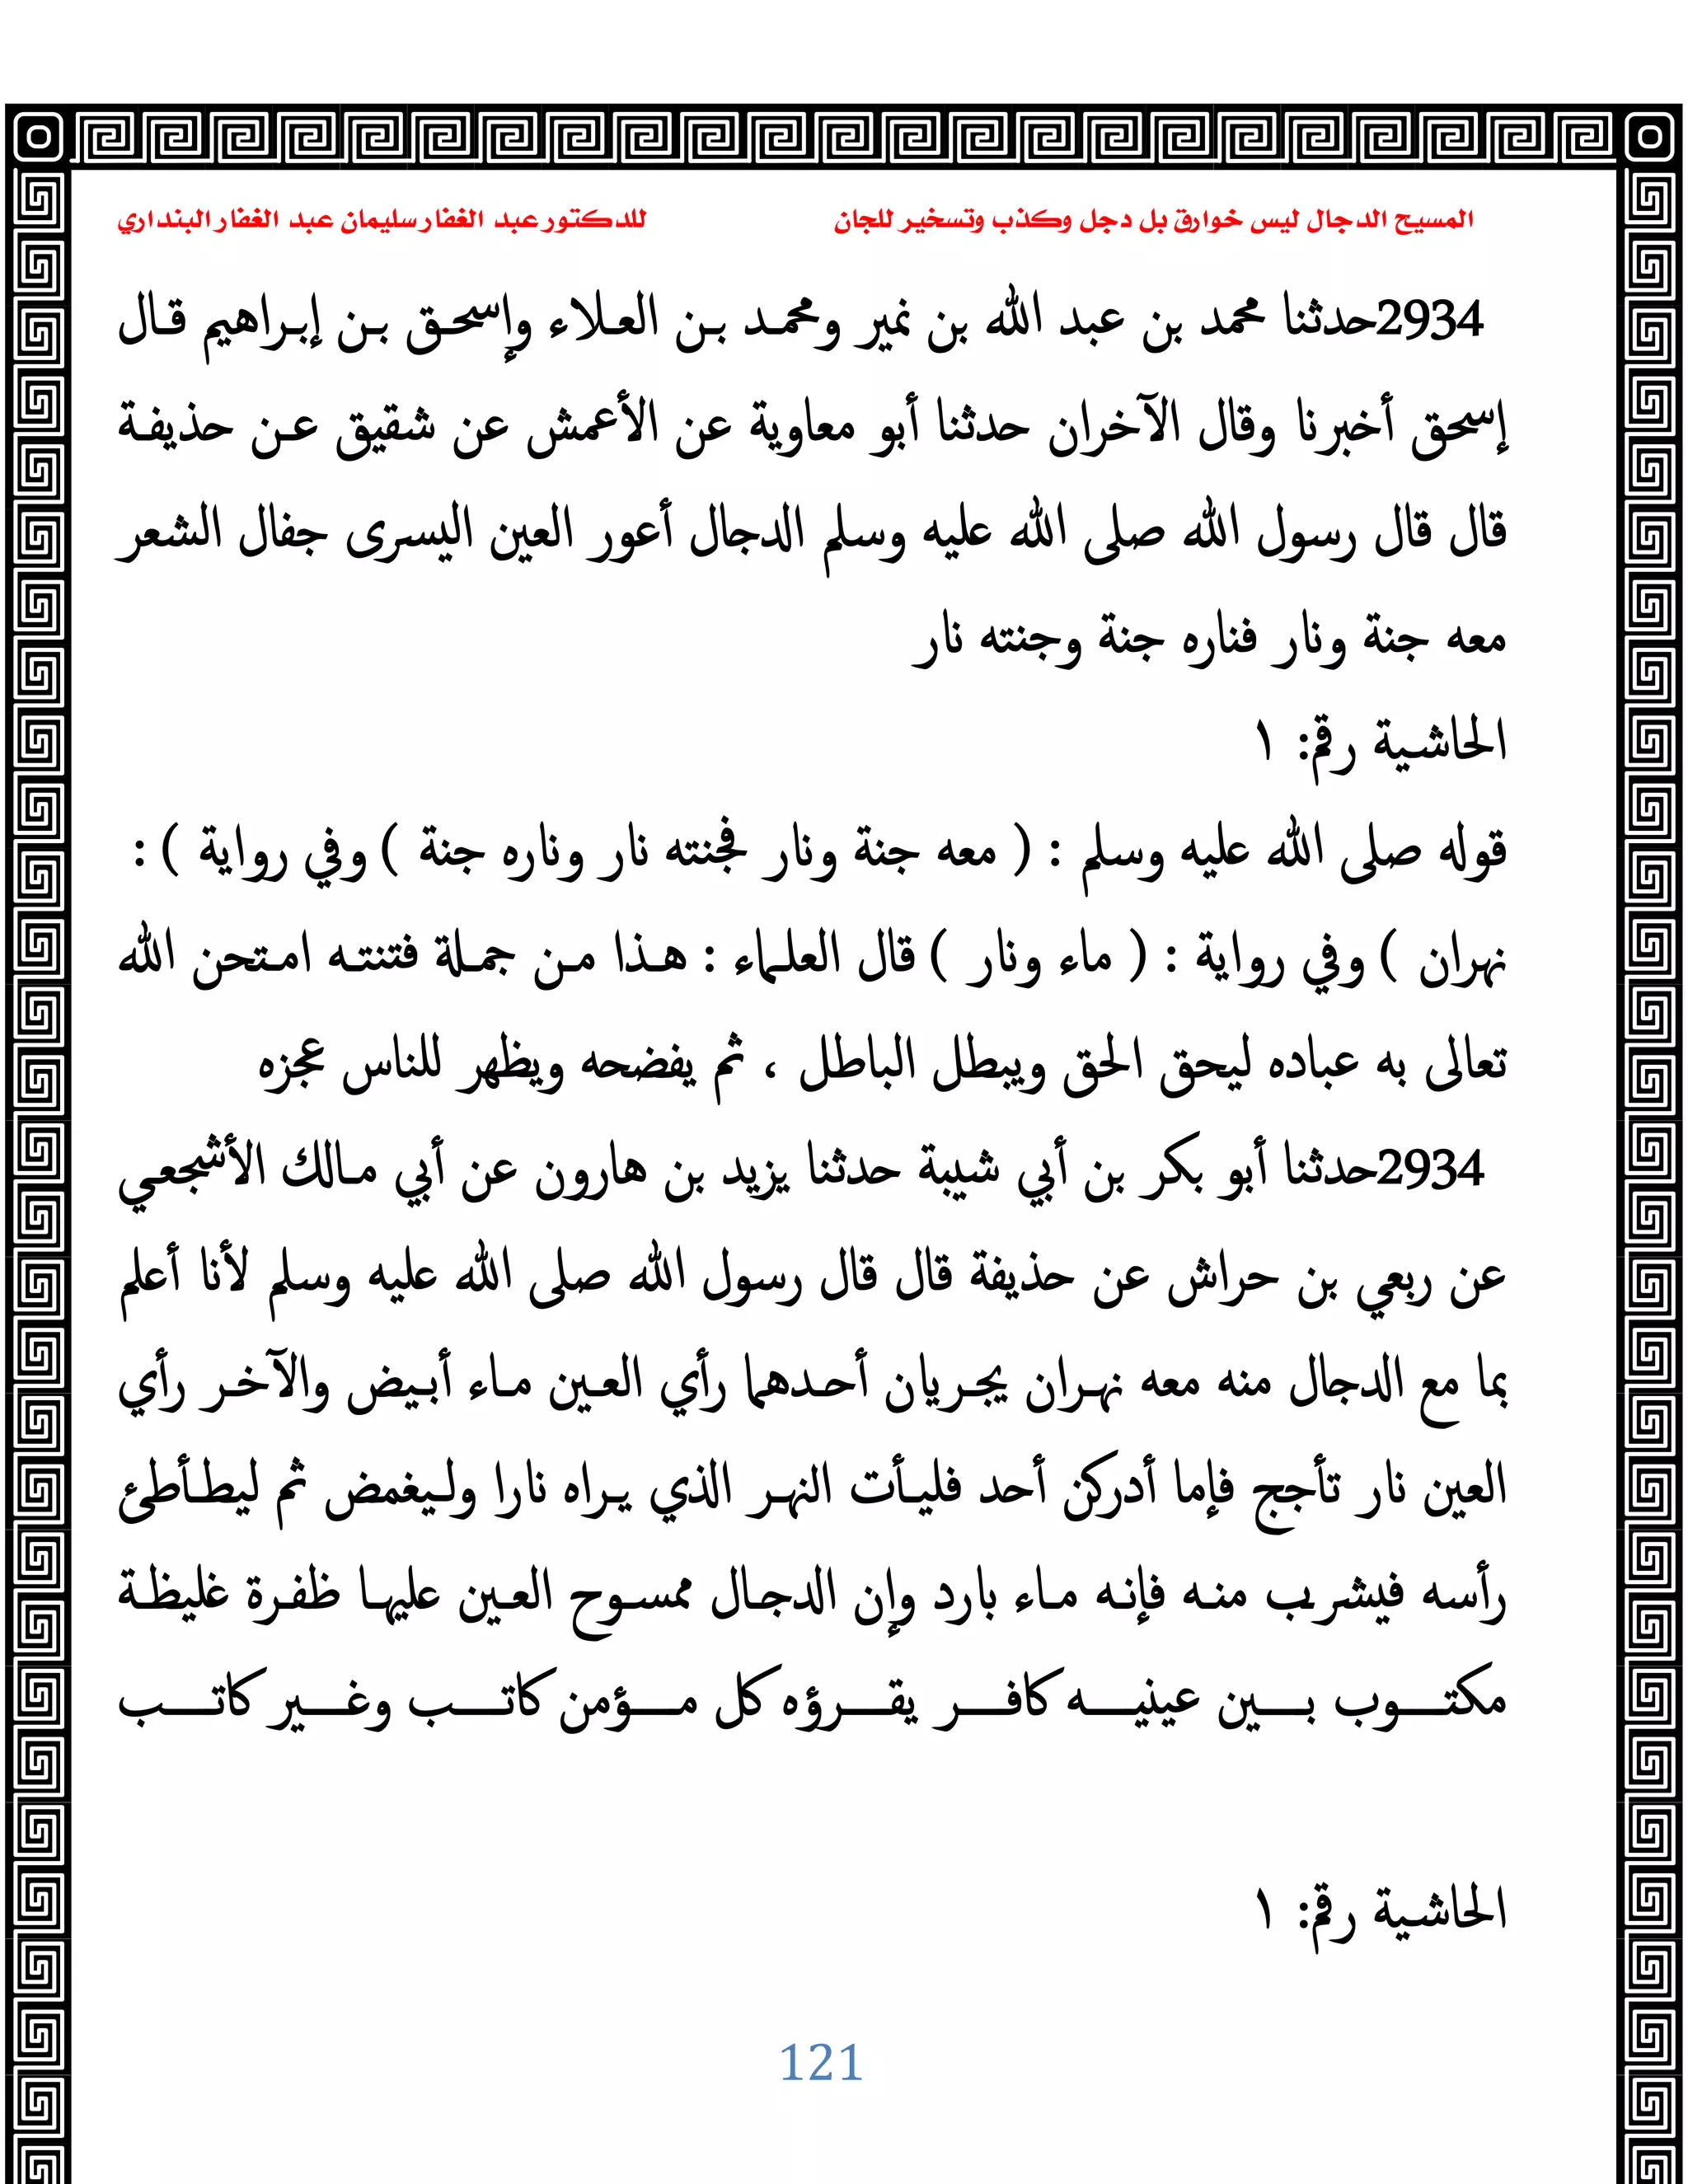 المسيح الدجال ليس خوارق بل دجل وكذب وتسخير للجان للدكتور عبد الغفار سليمان عبد الغفار البنداري
2934حدثنا محمد بن عبد الله بن نمير ومحمد بن العلاء وإسحق بن إبراهيم قال
إسحق أخبرنا وقال الآخران حدثنا أبو معاوية عن الأعمش عن شقيق عن حذيفة
قال قال رسول الله صلى الله عليه وسلم الدجال أعور العين اليسرى جفال الشعر
معه جنة ونار فناره جنة وجنته نار
الحاشية رقم: ١
قوله صلى الله عليه وسلم : ( معه جنة ونار فجنته نار وناره جنة ) وفي رواية ) :
نهران ) وفي رواية : ( ماء ونار ) قال العلماء : هذا من جملة فتنته امتحن الله
تعالى به عباده ليحق الحق ويبطل الباطل ، ثم يفضحه ويظهر للناس عجزه
2934حدثنا أبو بكر بن أبي شيبة حدثنا يزيد بن هارون عن أبي مالك الأشجعي
عن ربعي بن حراش عن حذيفة قال قال رسول الله صلى الله عليه وسلم لأنا أعلم
بما مع الدجال منه معه نهران يجريان أحدهما رأي العين ماء أبيض والآخر رأي
العين نار تأجج فإما أدركن أحد فليأت النهر الذي يراه نارا وليغمض ثم ليطأطئ
رأسه فيشرب منه فإنه ماء بارد وإن الدجال ممسوح العين عليها ظفرة غليظة
مكتوب بين عينيه كافر يقرؤه كل مؤمن كاتب وغير كاتب
الحاشية رقم: ١
121